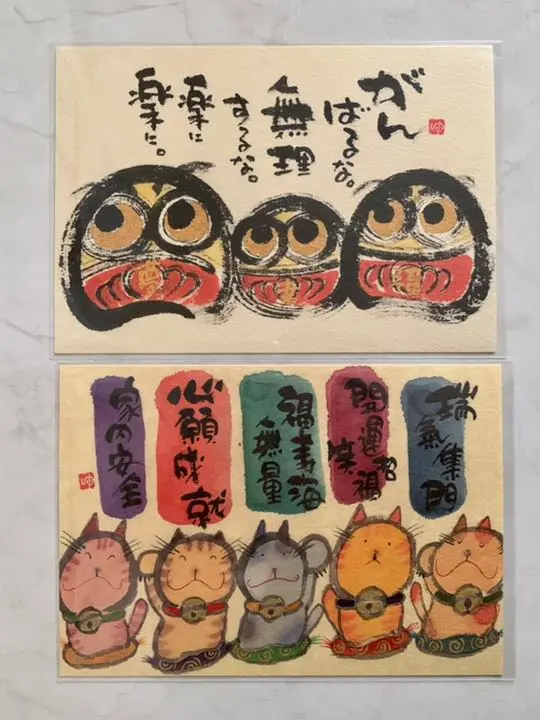 がん
ばるな。
無理
するな。
楽に
楽に。
夢
瑞氣集門
開運招福
笑
福寿海
無量
心願成就
家内安全